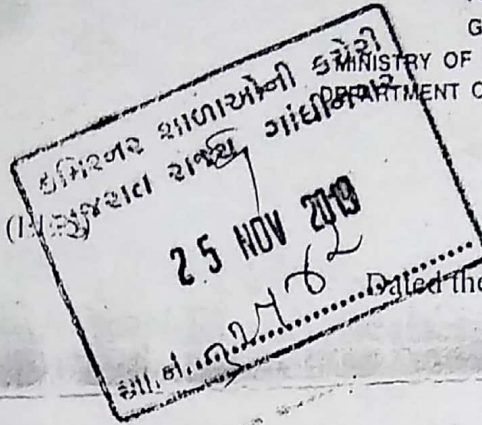 G
MINISTRY OF
DEPARTMENT O
કમિશ્નર શાળાઓની કચેરી
ગુજરાત રાજ્ય ગાંધીનગર
25 NOV 2019
Dated the